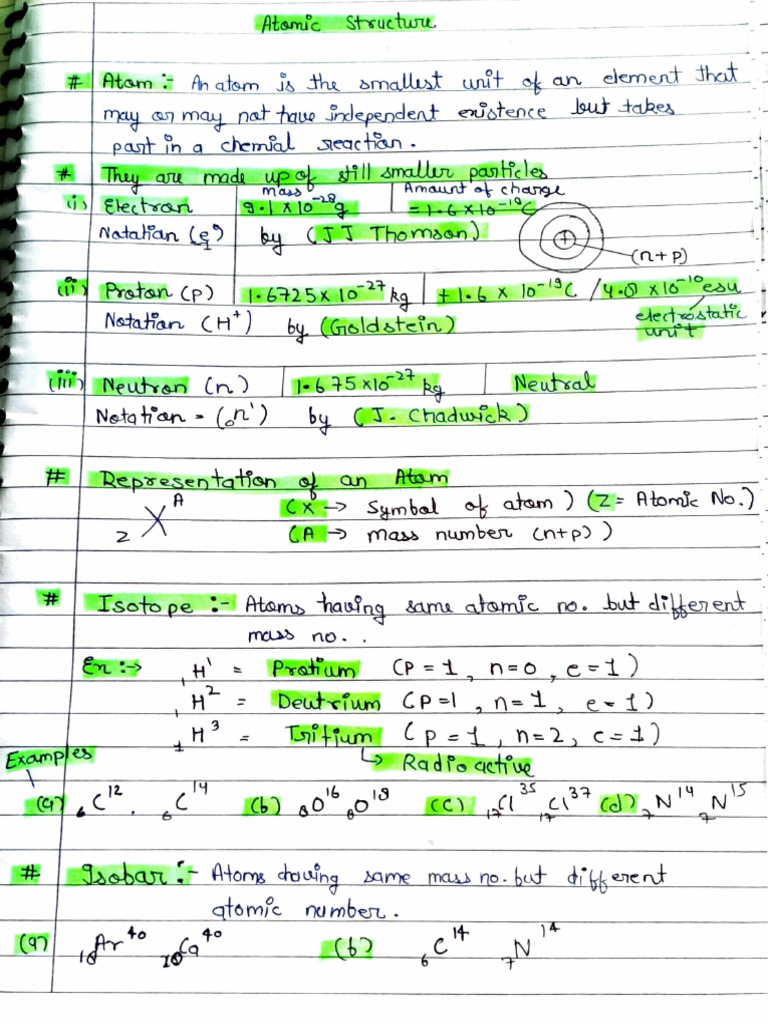 Atomic Structure
# Atom :- An atom is the smallest unit of an element that
may or may not have independent existence but takes
part in a chemial reaction.
# They are made up of still smaller particles
mass Amount of charge
(i) Electron 9.1 x 10⁻²⁸g = 1.6 x 10⁻¹⁹C
Notation by (JJ Thomson)
(n+p)
(ii) Proton (p) 1.6725 x 10⁻²⁷ kg +1.6 x 10⁻¹⁹C / x 10⁻¹⁰ esu
Notation (H⁺) by (Goldstein) electrostatic
unit
(iii) Neutron (n) 1.675 x 10⁻²⁷ kg Neutral
Notation = (₀n¹) by (J. Chadwick)
# Representation of an Atom
A
X (X → Symbol of atom) (Z = Atomic No.)
Z (A → mass number (n+p))
# Isotope :- Atoms having same atomic no. but different
mass no..
Ex :→ ₁H¹ = Protium (P = 1, n=0, e=1)
₁H² = Deutrium (P=1, n=1, e=1)
₁H³ = Tritium (p=1, n=2, e=1)
Examples ↳ Radioactive
(a) ₆C¹², ₆C¹⁴ (b) ₈O¹⁶ ₈O¹⁸ (c) ₁₇Cl³⁵ ₁₇Cl³⁷ (d) ₇N¹⁴ ₇N¹⁵
# Isobar :- Atoms having same mass no. but different
atomic number.
(a) ₁₈Ar⁴⁰ Ca⁴⁰ (b) ₆C¹⁴ ₇N¹⁴